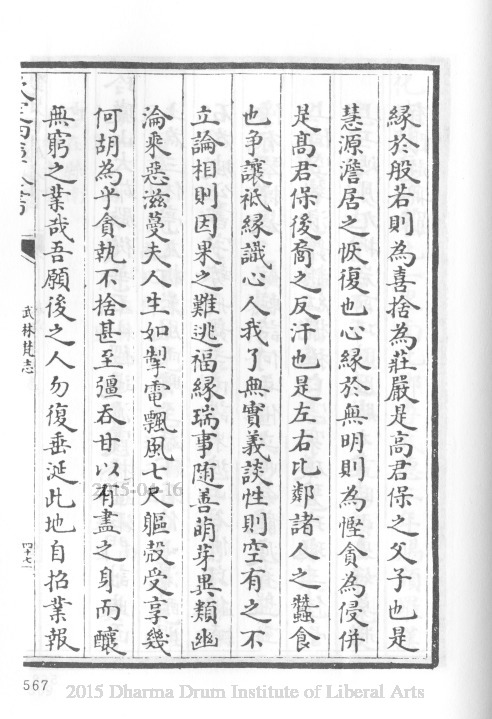 緣於般若則為喜捨為莊嚴是高君保之父子也是
慧源澹居之恢復也心緣於無明則為慳貪為侵併
是髙君保後裔之反汗也是左右比鄰諸人之蠶食
也争讓袛緣識心人我了無實義談性則空有之不
立論相則因果之難逃福緣瑞事随善萌芽異類幽
淪乘惡滋蔓夫人生如掣電飄風七尺軀殼受享幾
何胡為乎貪執不捨甚至彊吞甘以有盡之身而釀
無窮之業哉吾願後之人勿復垂涎此地自招業報
武林梵志
四十七
2015-04-16
567
2015 Dharma Drum Institute of Liberal Arts